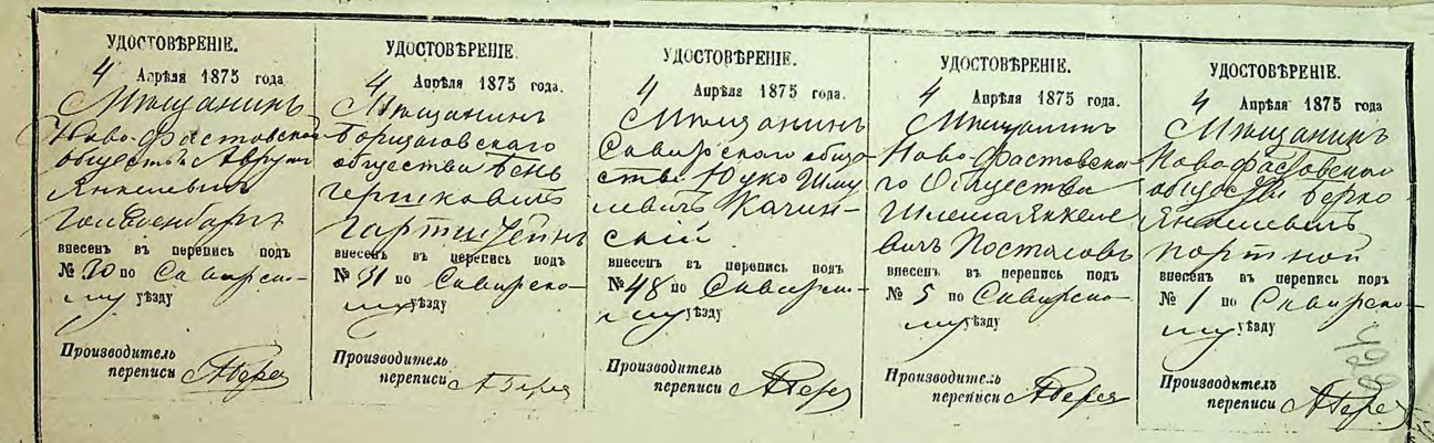 УДОСТОВѢРЕНІЕ.
4 Апрѣля 1875 года.
Мѣщанинъ
Ново-Фастовскаго
общества Аврумъ
Янкелевичъ
Гольденбергъ
внесенъ въ перепись подъ
№ 20 по Сквирско-
му уѣзду
Производитель
переписи
УДОСТОВѢРЕНІЕ.
4 Апрѣля 1875 года.
Мѣщанинъ
общества Бень
Гершковичъ
внесенъ въ перепись подъ
№ 31 по Сквирско-
му уѣзду
Производитель
переписи
УДОСТОВѢРЕНІЕ.
4 Апрѣля 1875 года.
Мѣщанинъ
Сквирскаго обще-
ства Юдко Шму
левичъ Качин-
скій
внесенъ въ перепись подъ
№ 48 по Сквирско-
му уѣзду
Производитель
переписи
УДОСТОВѢРЕНІЕ.
4 Апрѣля 1875 года.
Мѣщанинъ
Ново Фастовска-
го Общества
Шлема Янкеле
вичъ Постоловъ
внесенъ въ перепись подъ
№ 5 по Сквирско-
му уѣзду
Производитель
переписи
УДОСТОВѢРЕНІЕ.
4 Апрѣля 1875 года
Мѣщанинъ
Новофастовскаго
общества Берко
Янкелевичъ
Портной
внесенъ въ перепись подъ
№ 1 по Сквирско-
му уѣзду
Производитель
переписи